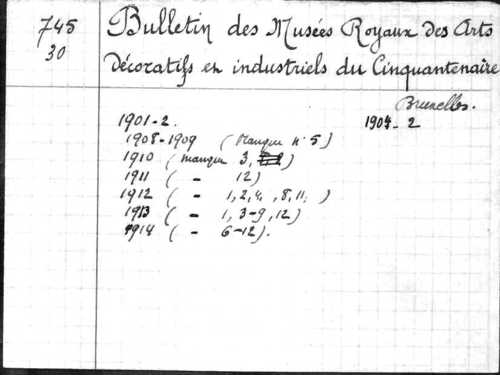 745
30
Bulletin des Musées Royaux des Arts
Décoratifs en industriels du Cinquantenaire
Bruxelles.
1901-2. 1907-2
1908-1909 (Manque n° 5)
1910 (manque 3, )
1911 ( - 12)
1912 ( - 1, 2, 4, , 8, 11, )
1913 ( - 1, 3-9, 12)
1914 ( - 6-12).